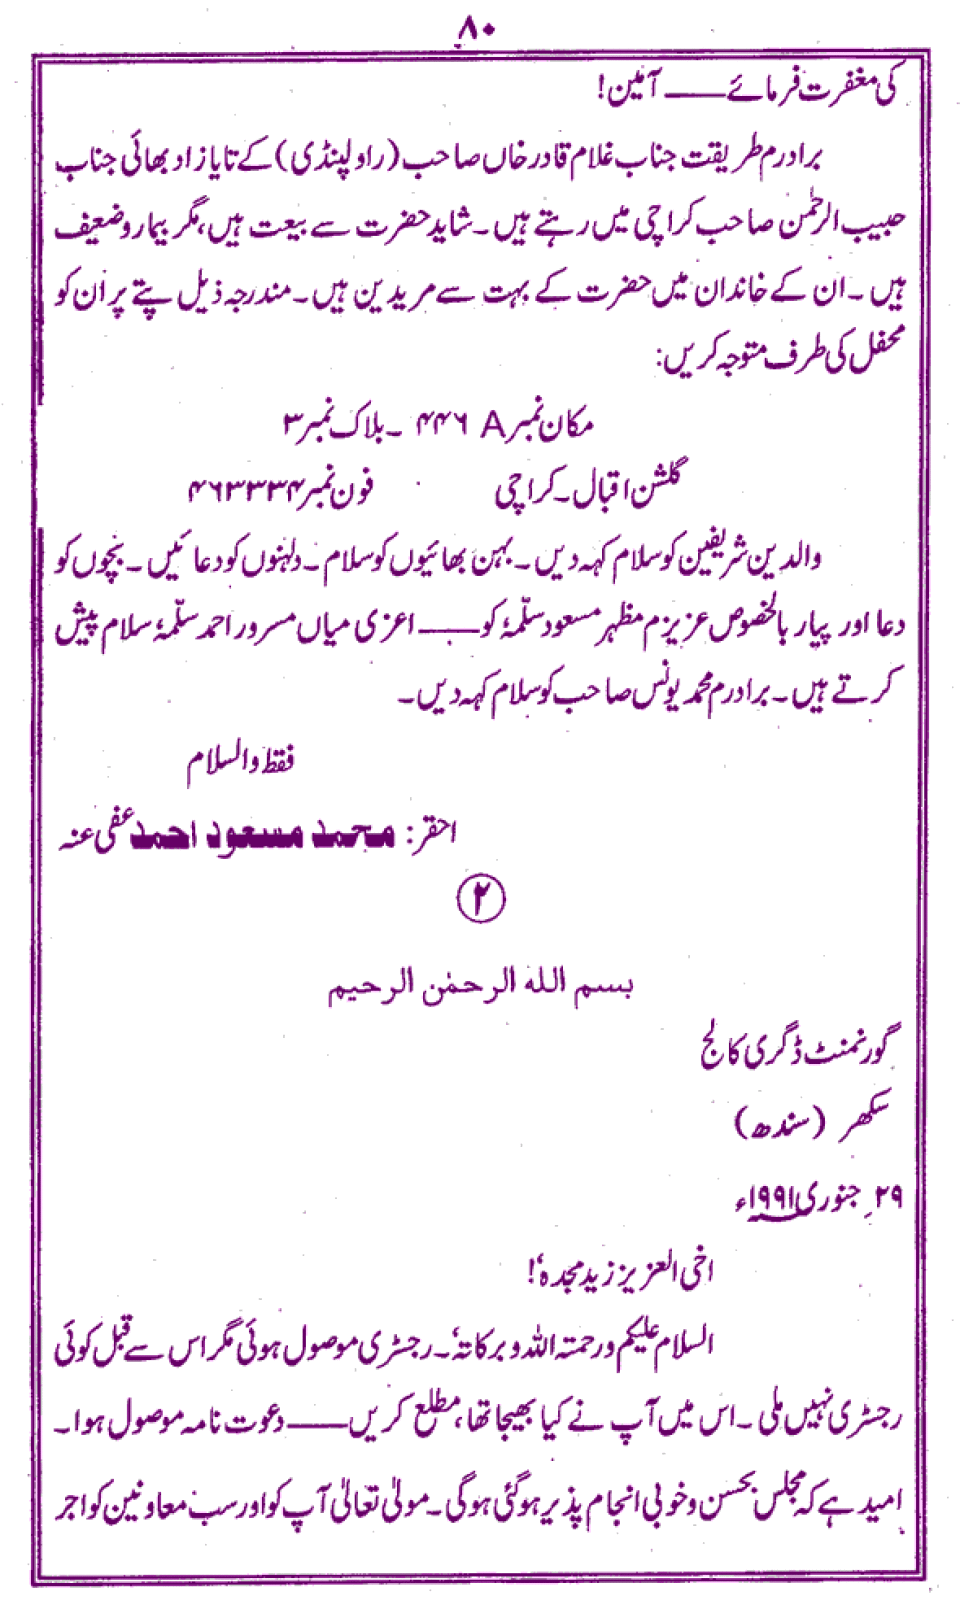 ۸۰
کی مغفرت فرمائے ——— آمین!
برادرم طریقت جناب غلام قادر خاں صاحب (راولپنڈی) کے تایا زاد بھائی جناب
حبیب الرحمٰن صاحب کراچی میں رہتے ہیں۔ شاید حضرت سے بیعت ہیں، مگر بیمار و ضعیف
ہیں۔ ان کے خاندان میں حضرت کے بہت سے مریدین ہیں۔ مندرجہ ذیل پتے پر ان کو
محفل کی طرف متوجہ کریں:
مکان نمبر A ۴۴۶ ۔ بلاک نمبر ۳
گلشن اقبال۔ کراچی فون نمبر ۴۶۳۳۳۴
والدین شریفین کو سلام کہہ دیں۔ بہن بھائیوں کو سلام۔ دلہنوں کو دعائیں۔ بچوں کو
دعا اور پیار بالخصوص عزیزم مظہر مسعود سلّمہٗ کو ——— اعزی میاں مسرور احمد سلّمہٗ سلام پیش
کرتے ہیں۔ برادرم محمد یونس صاحب کو سلام کہہ دیں۔
فقط والسلام
احقر: محمد مسعود احمد عفی عنہ
۲
بسم اللہ الرحمٰن الرحیم
گورنمنٹ ڈگری کالج
سکھر (سندھ)
۲۹؍ جنوری ۱۹۹۱ء
اخی العزیز زید مجدہ‘!
السلام علیکم ورحمتہ اللہ وبرکاتہٗ۔ رجسٹری موصول ہوئی مگر اس سے قبل کوئی
رجسٹری نہیں ملی۔ اس میں آپ نے کیا بھیجا تھا، مطلع کریں ——— دعوت نامہ موصول ہوا۔
امید ہے کہ مجلس بحسن و خوبی انجام پذیر ہوگئی ہوگی۔ مولیٰ تعالیٰ آپ کو اور سب معاونین کو اجر